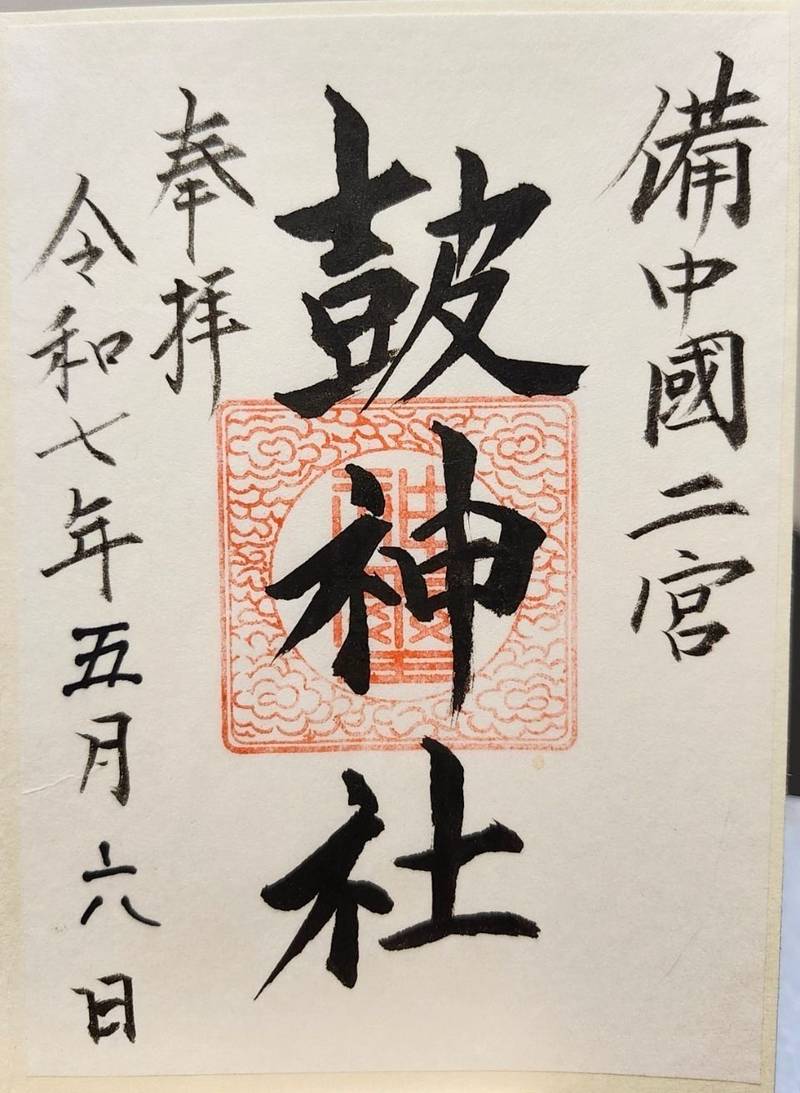 備中國二宮
鼓神社
奉拝
令和七年五月六日